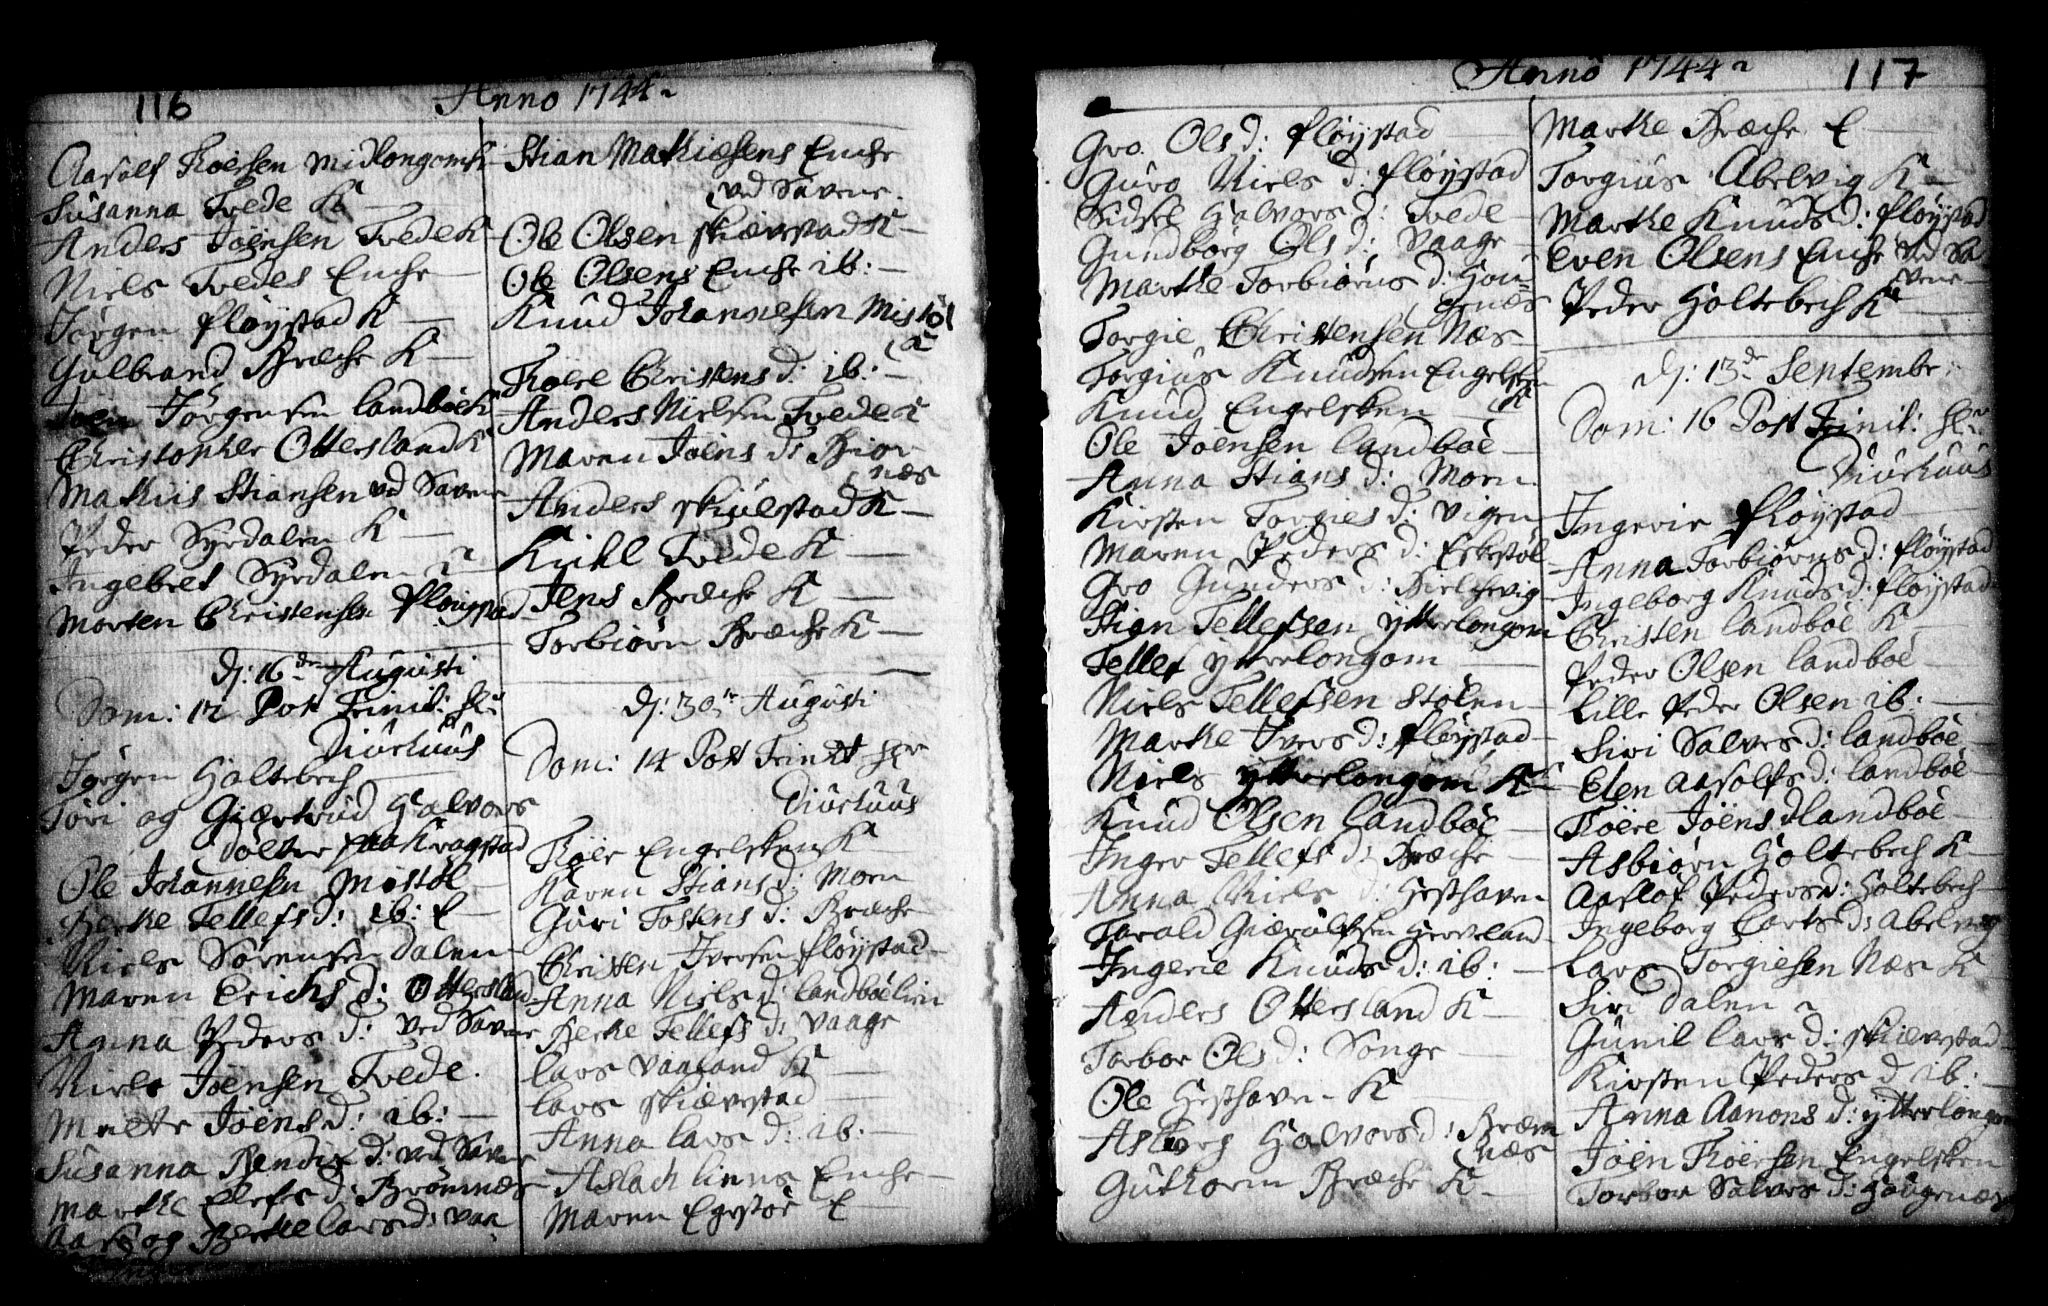 116
Anno 1744
Aasolf Thoersen Midlongom K
Susanna Tvede K
Anders Joensen Tvede K
Niels Tvedes Enche
Jørgen Fløystad K
Gulbrand Bræche K
Joen Jørgensen Landbøe K
Christopher Ottersland K
Mathis Stiansen ved Savene
Peder Syrdalen K
Ingebret Syrdalen
Morten Christensen Fløystad
Dj: 16de Augusti
Dom: 12 Post Trinit:
Diurhuus
Jørgen Holtebech
Tori og Giærtrud Halvors
døttre paa Kragstad
Ole Johannesen Mistøl
Berthe Tellefs d: ib: E
Niels Sørensen Dalen
Maren Erichs d: Ottersland
Anna Peders d: ved Savene
Niels Joensen Tvede
Mette Joens d: ib:
Susanna Bendix d: ved Savene
Marthe Ellefs d: Brømnæs
og Berthe Lars d: Vaa
Stian Mathiesens Enche
ved Savene
Ole Olsen Skiævestad K
Ole Olsens Enche ib:
Knud Johannesen Mistøl
K
Thore Christens d: ib:
Anders Nielsen Tvede K
Maren Joens d: Bior
næs
Anders Skiulestad K
Kield Tvede K
Jens Bræche K
Torbiørn Bræche K
Dj: 30te Augusti
Dom: 14 Post Trinit
Diurhuus
Thoer Engelsken K
Karen Stians d: Moen
Guri Tostens d: Bræche
Christen Iversen Fløystad
Anna Niels d: Landbøelien
Berthe Tellefs d: Vaage
Lars Vaaland K
Lars Skiævestad
Anna Lars d: ib:
Aslach Linns Enche
Maren Egestøe E
Anno 1744
117
Gro Ols d: Fløystad
Guro Niels d: Fløystad
Sidsel Halvors d: Tvede
Gundborg Ols d: Vaage
Marthe Torbiørns d: Hou=
genæs
Torgie Christensen Næs
Torgius Knudsen Engelsken
K
Knud Engelsken
Ole Joensen Landbøe
Anna Stians d: Moen
Kirsten Torgies d: Vigen
Maren Peders d: Eskestøl
Gro Gunders d: Bielchevig
Stian Tellefsen Ytterlongom
Tellef Ytterlongom
Niels Tellefsen Stølen
Marthe Ivers d: Fløystad
Niels Ytterlongom K
Knud Olsen Landbøe
Inger Tellefs d: Bræche
Anna Niels d: Hesthaven
Torald Giærulfsen Herveland
Ingerie Knuds d: ib:
Anders Ottersland K
Torbor Ols d: Songe
Ole Hesthaven K
Asborg Halvors d: Bræm
næs
Guthorm Bræche K
Marthe Bræche E
Torgius Abelvig K
Marthe Knuds d: Fløystad
Even Olsens Enche ved Sa
vene
Peder Holtebech K
Dj: 13de Septembr:
Dom: 16 Post Trinit:
Diurhuus
Ingerie Fløystad
Anna Torbiørns d: Fløystad
Ingeborg Knuds d: Fløystad
Christen Landbøe K
Peder Olsen Landbøe
Lille Peder Olsen ib:
Siri Salves d: Landbøe
Elen Aasolfs d: Landbøe
Thore Joens d Landbøe
Asbiørn Holtebech K
Aaslof Peders d: Holtebech
Ingeborg Lars d: Abelvig
Lars Torgiesen Næs K
Siri Dalen
Gunil Lars d: Skiævestad
Kirsten Peders d ib:
Anna Aanons d: Ytterlongom
Joen Thoersen Engelsken
Torbor Salves d: Hougenæs